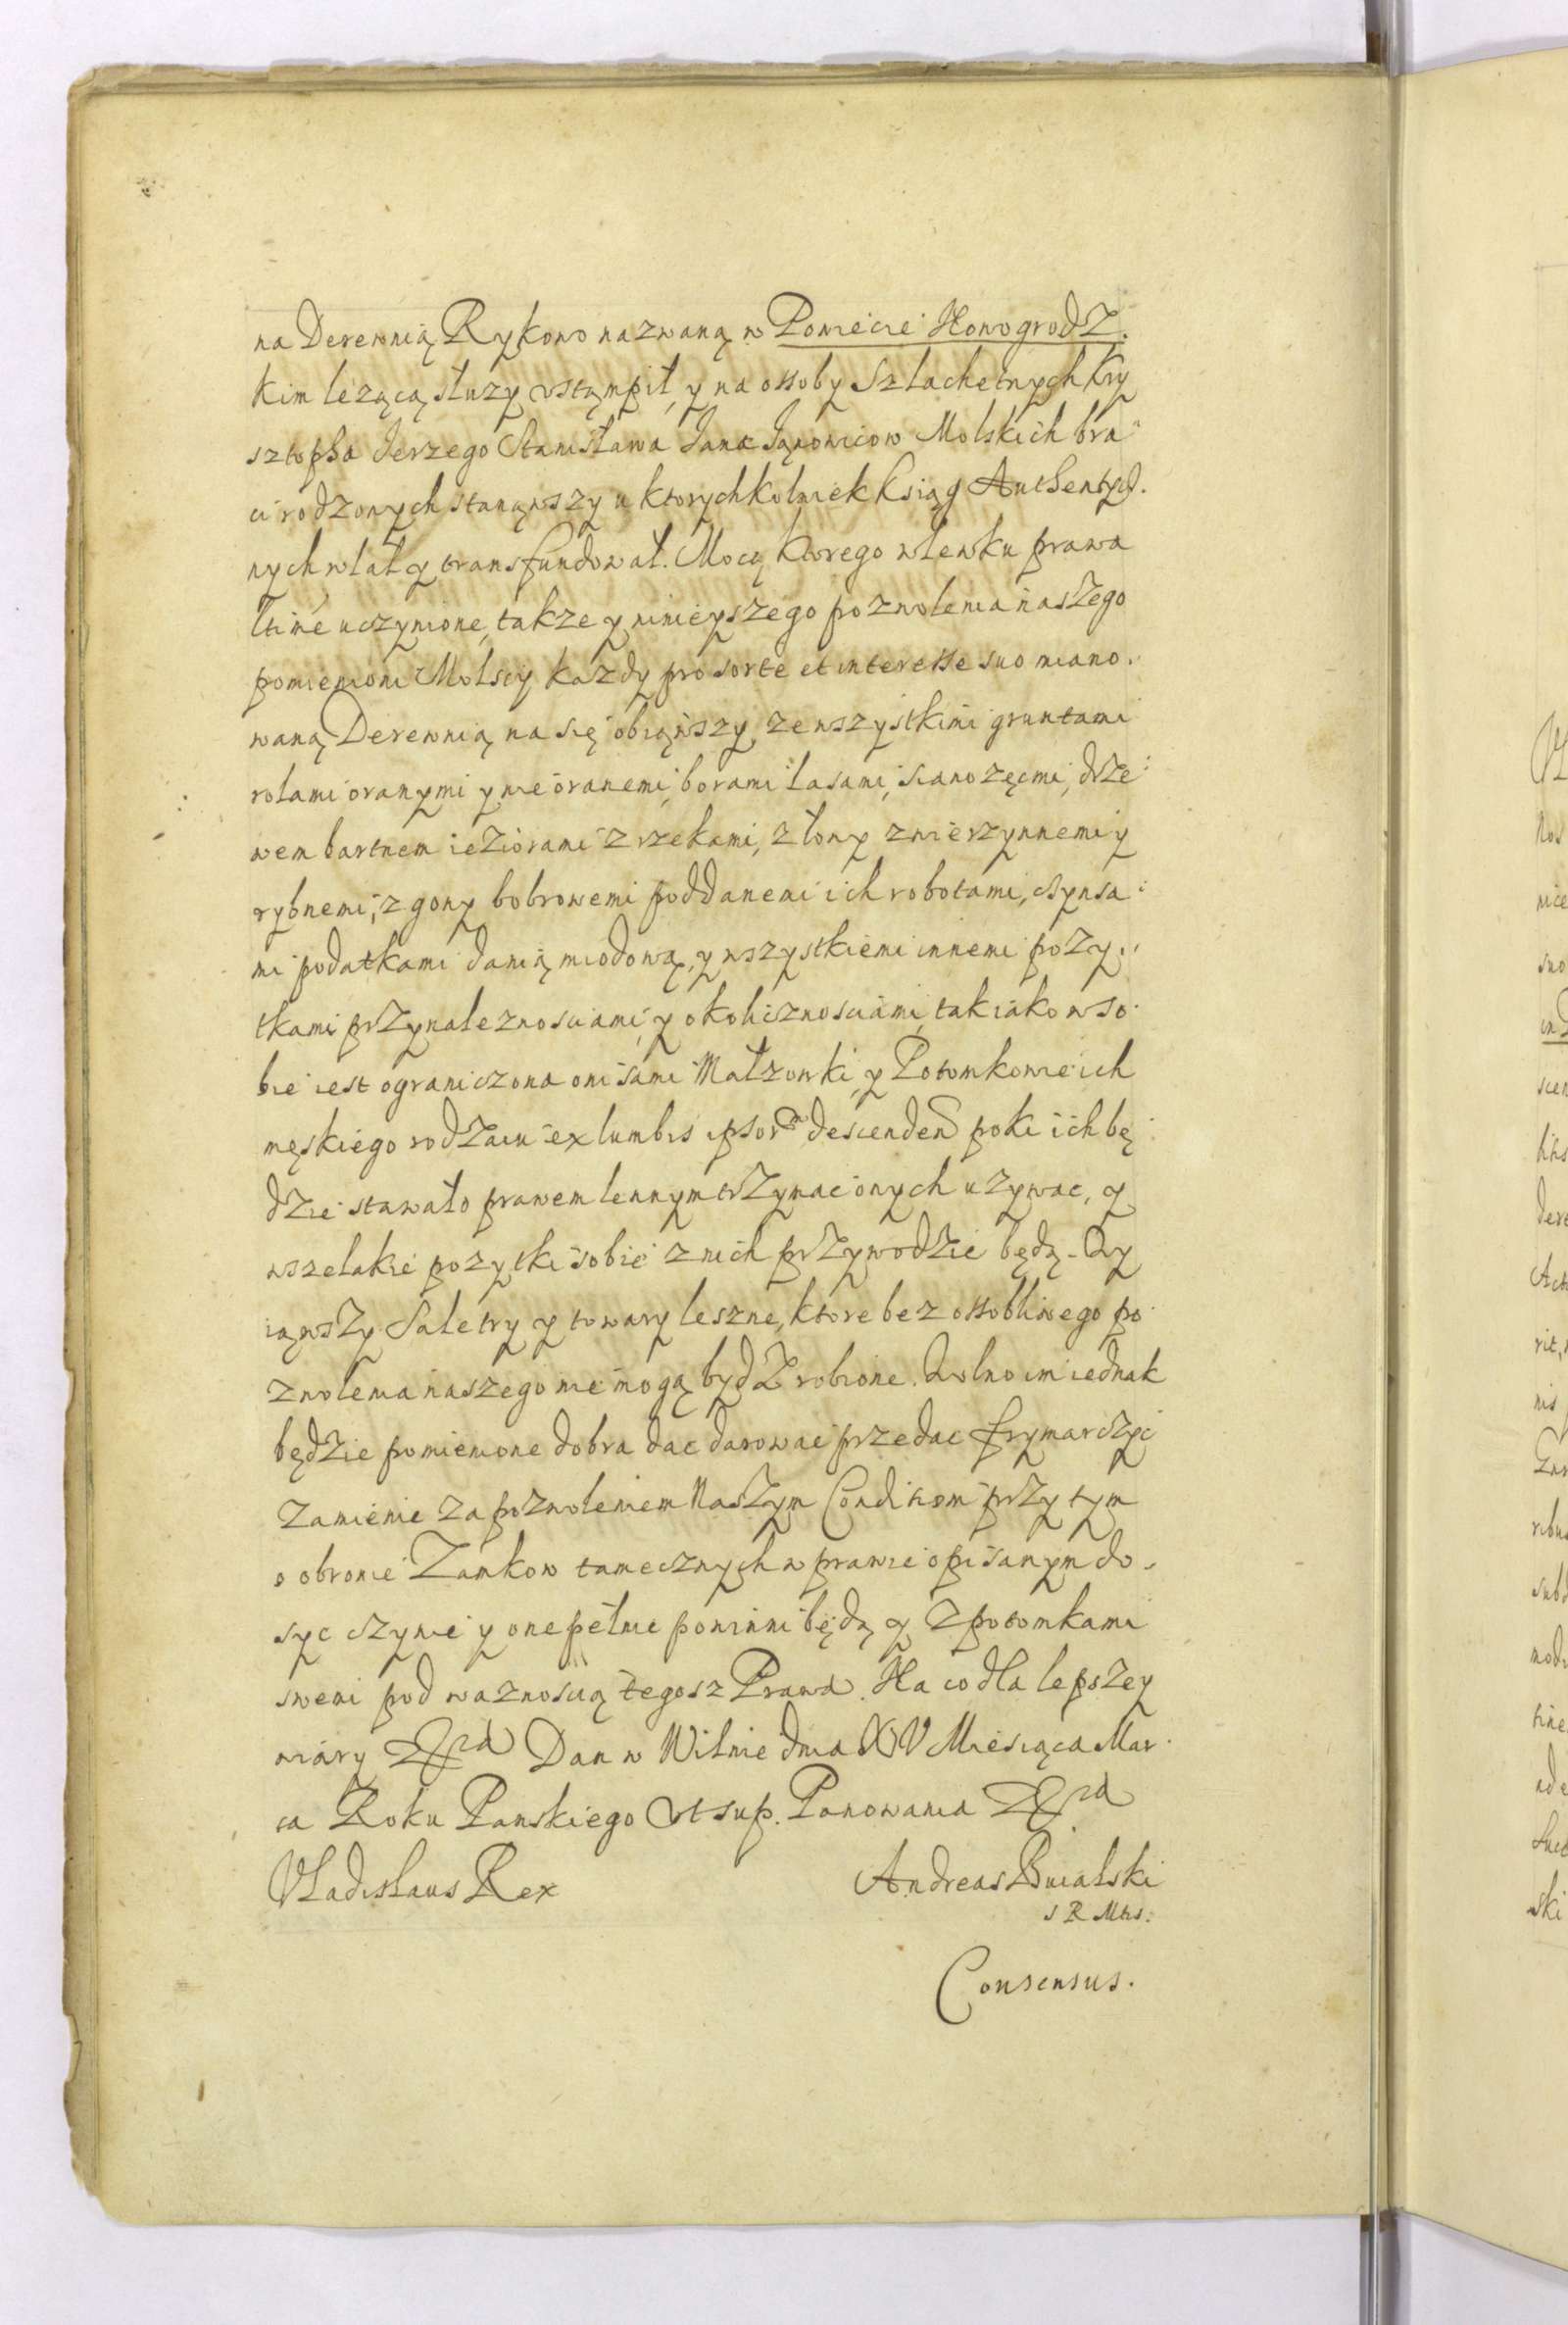 na Derewnią Rykowo nazwaną w Powiecie Nowogrodz.
kim leżącą służy vstąmpił, y na ossoby Szlachetnych Kry
sztopha Jerzego Stanisława Jana Janowicow Molskich bra
ci rodzonych stanąwszy u ktorychkolwiek Ksiąg Authentycz.
nych wlał y transfundował. Mocą ktorego wlewku prawa
ltime uczynione, także y ninieyszego pozwolenia naszego
pomienioni Molscy każdy pro sorte et interesse suo miano.
waną Derewnią na się obiąwszy, ze wszystkimi gruntami
rolami oranymi y nie oranemi, borami lasami, sianożęcmi, drze
wem bartnem ieziorami z rzekami, z łony zwierzynnemi y
rybnemi, z gony bobrowemi poddanemi ich robotami, czynsa
mi podatkami danią miodową, y wszystkiemi innemi poży.
tkami przynaleznosciami, y okolicznosciami, tak iako w so
bie iest ograniczona oni sami Małżonki, y Potomkowie ich
męskiego rodzaiu ex lumbis ipsor descenden poki ich bę
dzie stawało prawem lennym trzymac onych używac, y
wszelakie pożytki sobie z nich przywodzic będą. Wy
iąwszy Saletry y towary leszne, ktore bez ossobliwego po
zwolenia naszego nie mogą bydz robione. Wolno im iednak
będzie pomienione dobra dac darowac przedac frymarczyc
zamienic za pozwoleniem Naszym Condition przy tym
o obronie Zamkow tamecznych w prawie opisanym do.
syc czynic y one pełnic powinni będą y z potomkami
swemi pod ważnoscią tegosz Prawa. Na co dla lepszey
wiary Dan w Wilnie dnia XV Miesiąca Mar
ca Roku Panskiego vt sup. Panowania
Vladislaus Rex Andreas Buialski
S R Mtis.
Consensus.